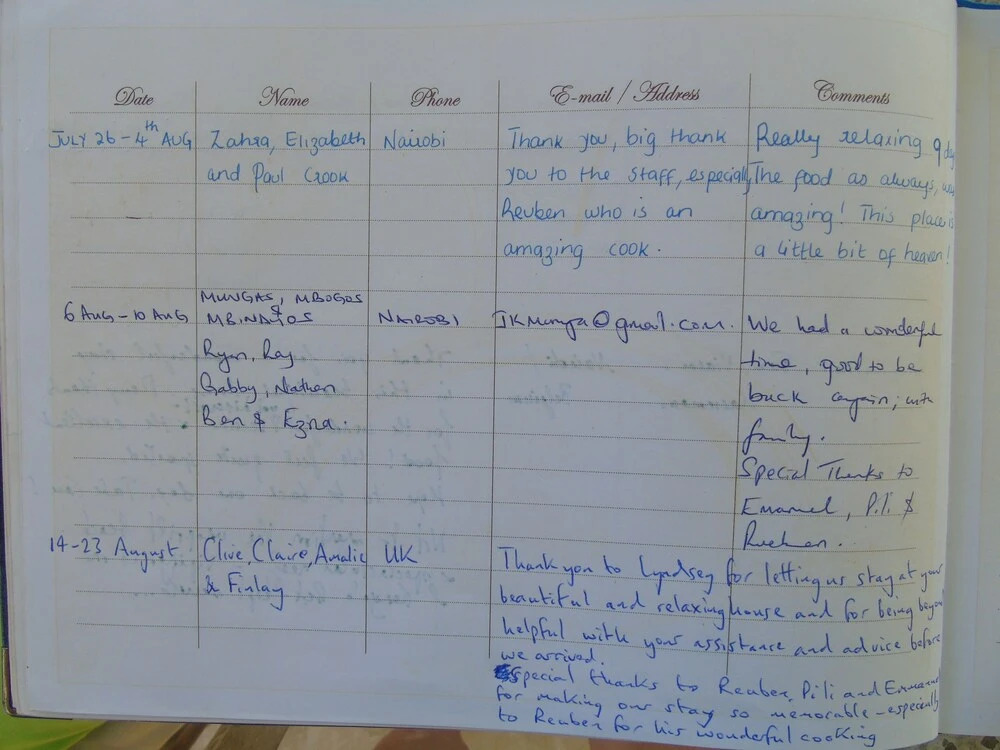 Date Name Phone E-mail / Address Comments
JULY 26 - 4th AUG Zahra, Elizabeth Nairobi Thank you, big thank Really relaxing 9
and Paul Crook you to the staff, especially The food as always,
Reuben who is an amazing! This place is
amazing cook. a little bit of heaven!
MUNGAS, MBOGOS
6 AUG - 10 AUG & NAIROBI JKMunga@gmail.com. We had a wonderful
Ryan, Ray time, good to be
Gabby, Nathan back again, with
Ben & Ezra. family.
Special Thanks to
Emanuel, Pili &
Rueben.
14-23 August Clive, Claire, Amalie UK Thank you to Lyndsey for letting us stay at your
& Finlay beautiful and relaxing house and for being beyond
helpful with your assistance and advice before
we arrived.
Special thanks to Reuben, Pili and Emmanu
for making our stay so memorable - especially
to Reuben for his wonderful cooking